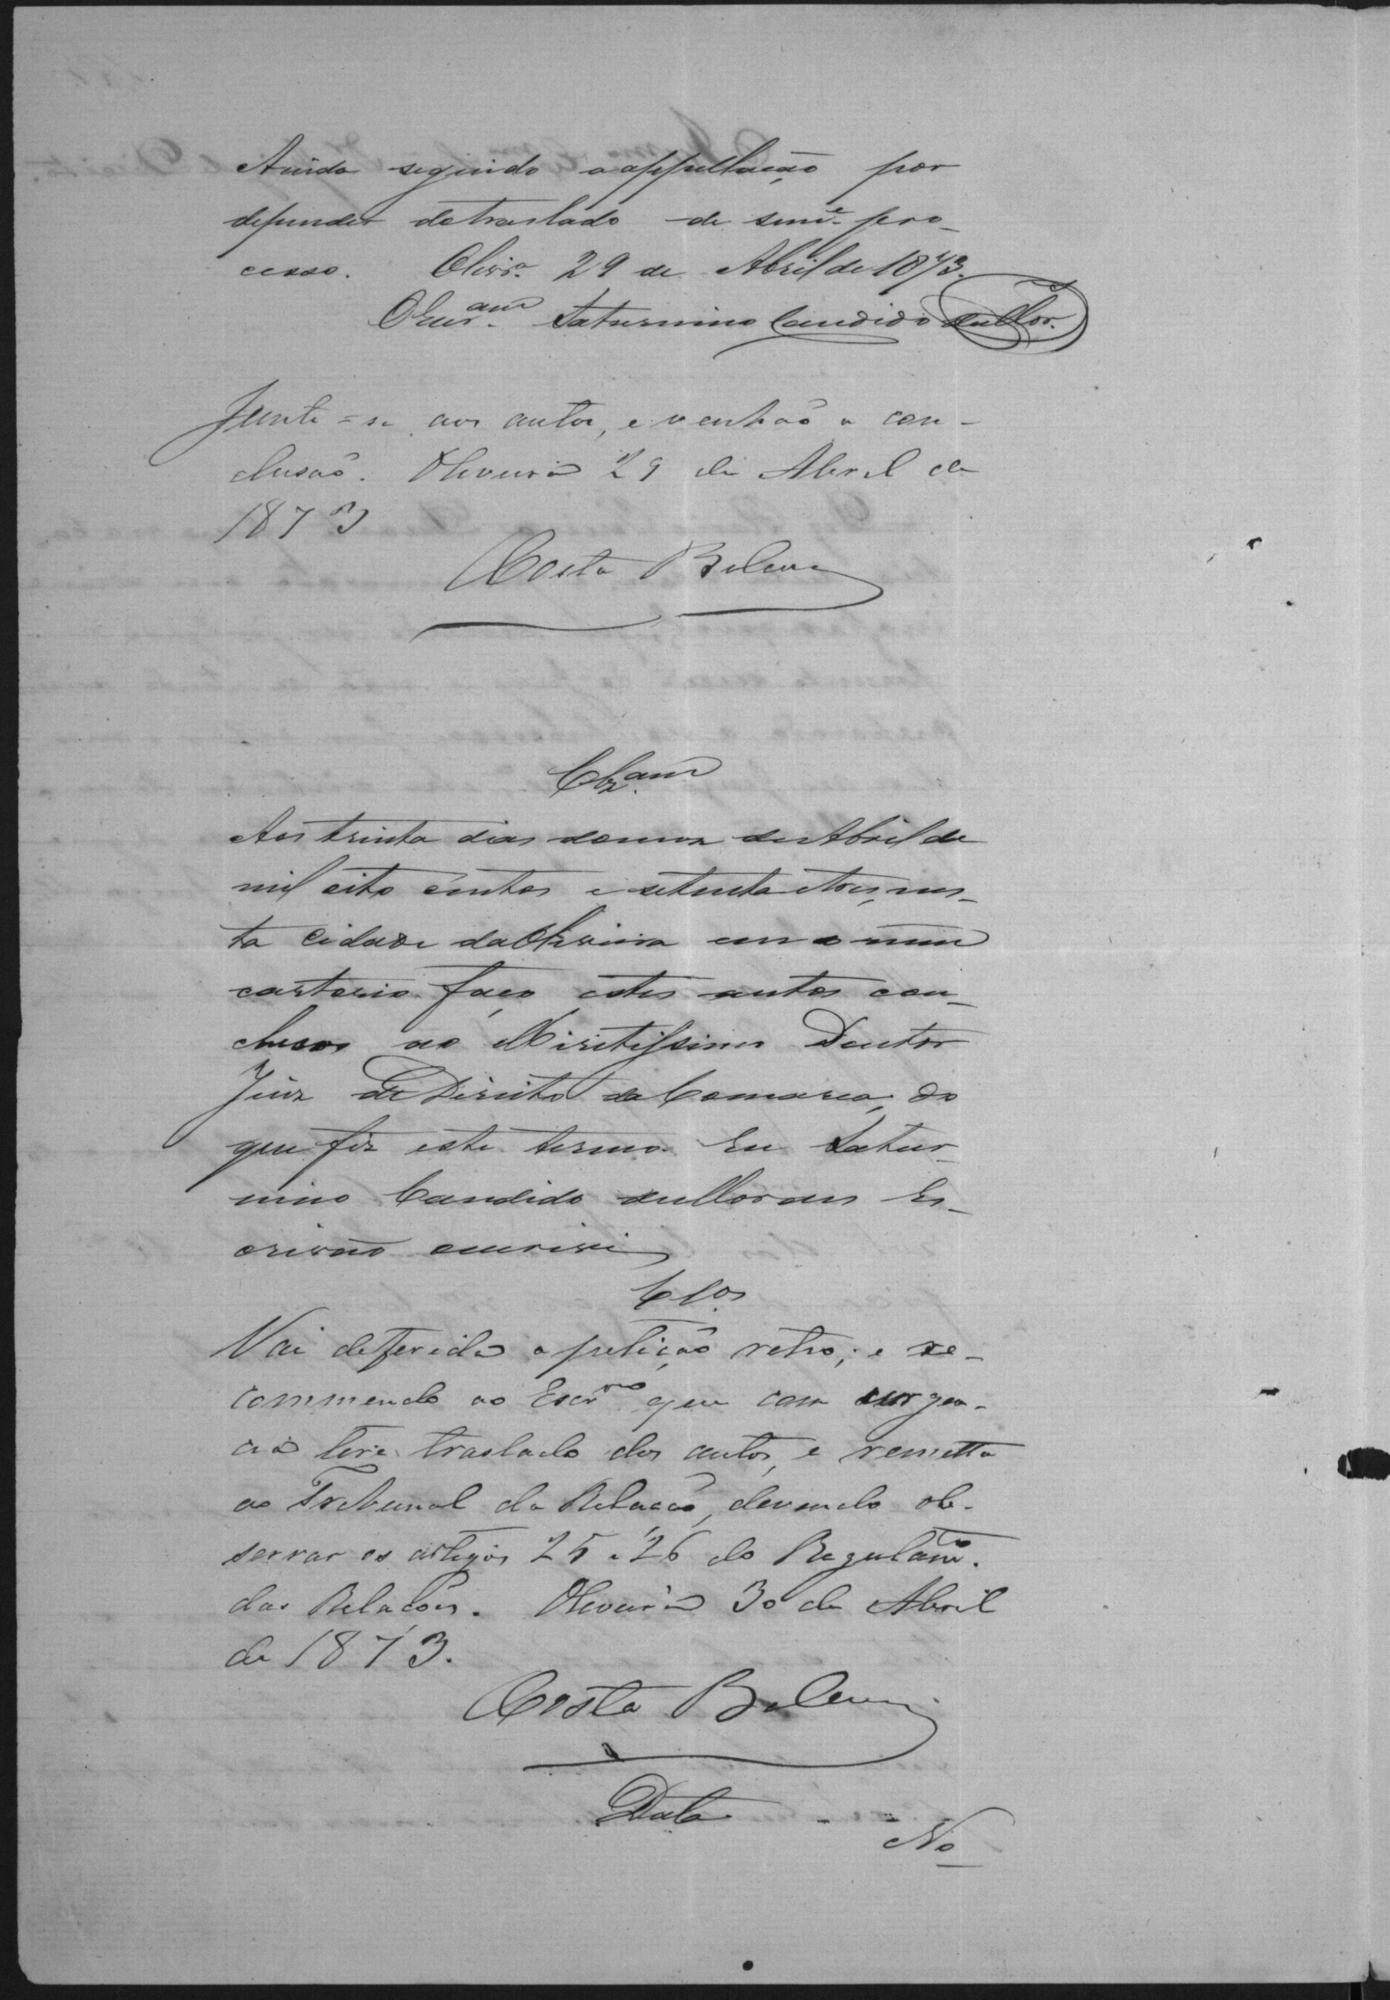 Ainda seguido a appellação por
depender do traslado de semᵉ pro-
cesso. Olivrª 29 de Abril de 1873.
O Escrᵃᵐ Saturnino Candido de Mor.
Junte-se aos autos, e venhão a con-
clusaõ. Oliveira 29 de Abril de
1873
Costa Belem
Clzᵃᵐ
Aos trinta dias do mez de Abril de
mil oito centos e setenta e tres, nes-
ta Cidade da Oliveira em o meu
cartorio faço estes autos con-
clusos ao Miritissimo Doutor
Juiz de Direito da Comarca, do
que fiz este termo. Eu Satur-
nino Candido de Moraes Es-
crivão escrivi
Clºˢ
Vai deferida a petição retro; e re-
commendo ao Escrᵐᵒ que com urgen-
cia tire traslado dos autos, e remetta
ao Tribunal da Relação, devendo ob-
servar os artigos 25 e 26 do Regulamᵗᵒ.
das Relações. Oliveira 30 de Abril
de 1873.
Costa Belem
Data
No